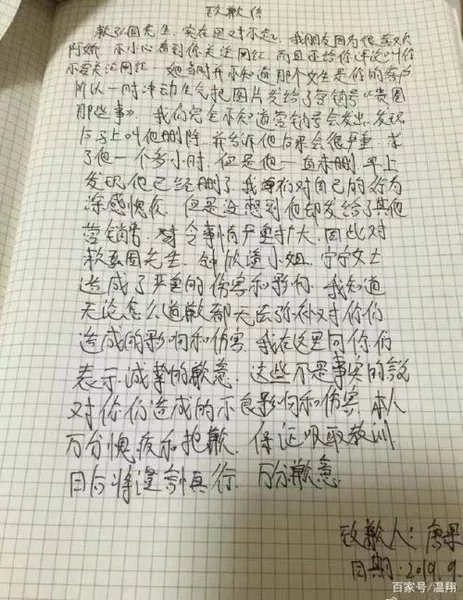 致歉信
赖弘国先生,实在是对不起,我朋友因为很喜欢
阿娇,不小心看到你关注网红,而且还给你评论叫你
不要关注网红,她当时并不知道那个女生是你的客户
所以一时冲动生气把图片发给了营销号“贵圈
那些事”。我们完全不知道营销号会发出,发现
后马上叫他删除,并告诉他后果会很严重,求
了他一个多小时,但是他一直未删,早上
发现他已经删了,我们对自己的行为
深感愧疚,但是没想到他却发给了其他
营销号,令事情严重扩大,因此对
赖弘国先生、钟欣潼小姐、宁宁女士
造成了严重的伤害和影响,我知道
无论怎么道歉都无法弥补对你们
造成的影响和伤害,我在这里向你们
表示诚挚的歉意,这些不是事实的說
对你们造成的不良影响和伤害,本人
万分愧疚和抱歉,保证吸取教训
日后将谨言慎行,万分歉意。
致歉人:唐果
日期:2019.9.
百家号/温翔